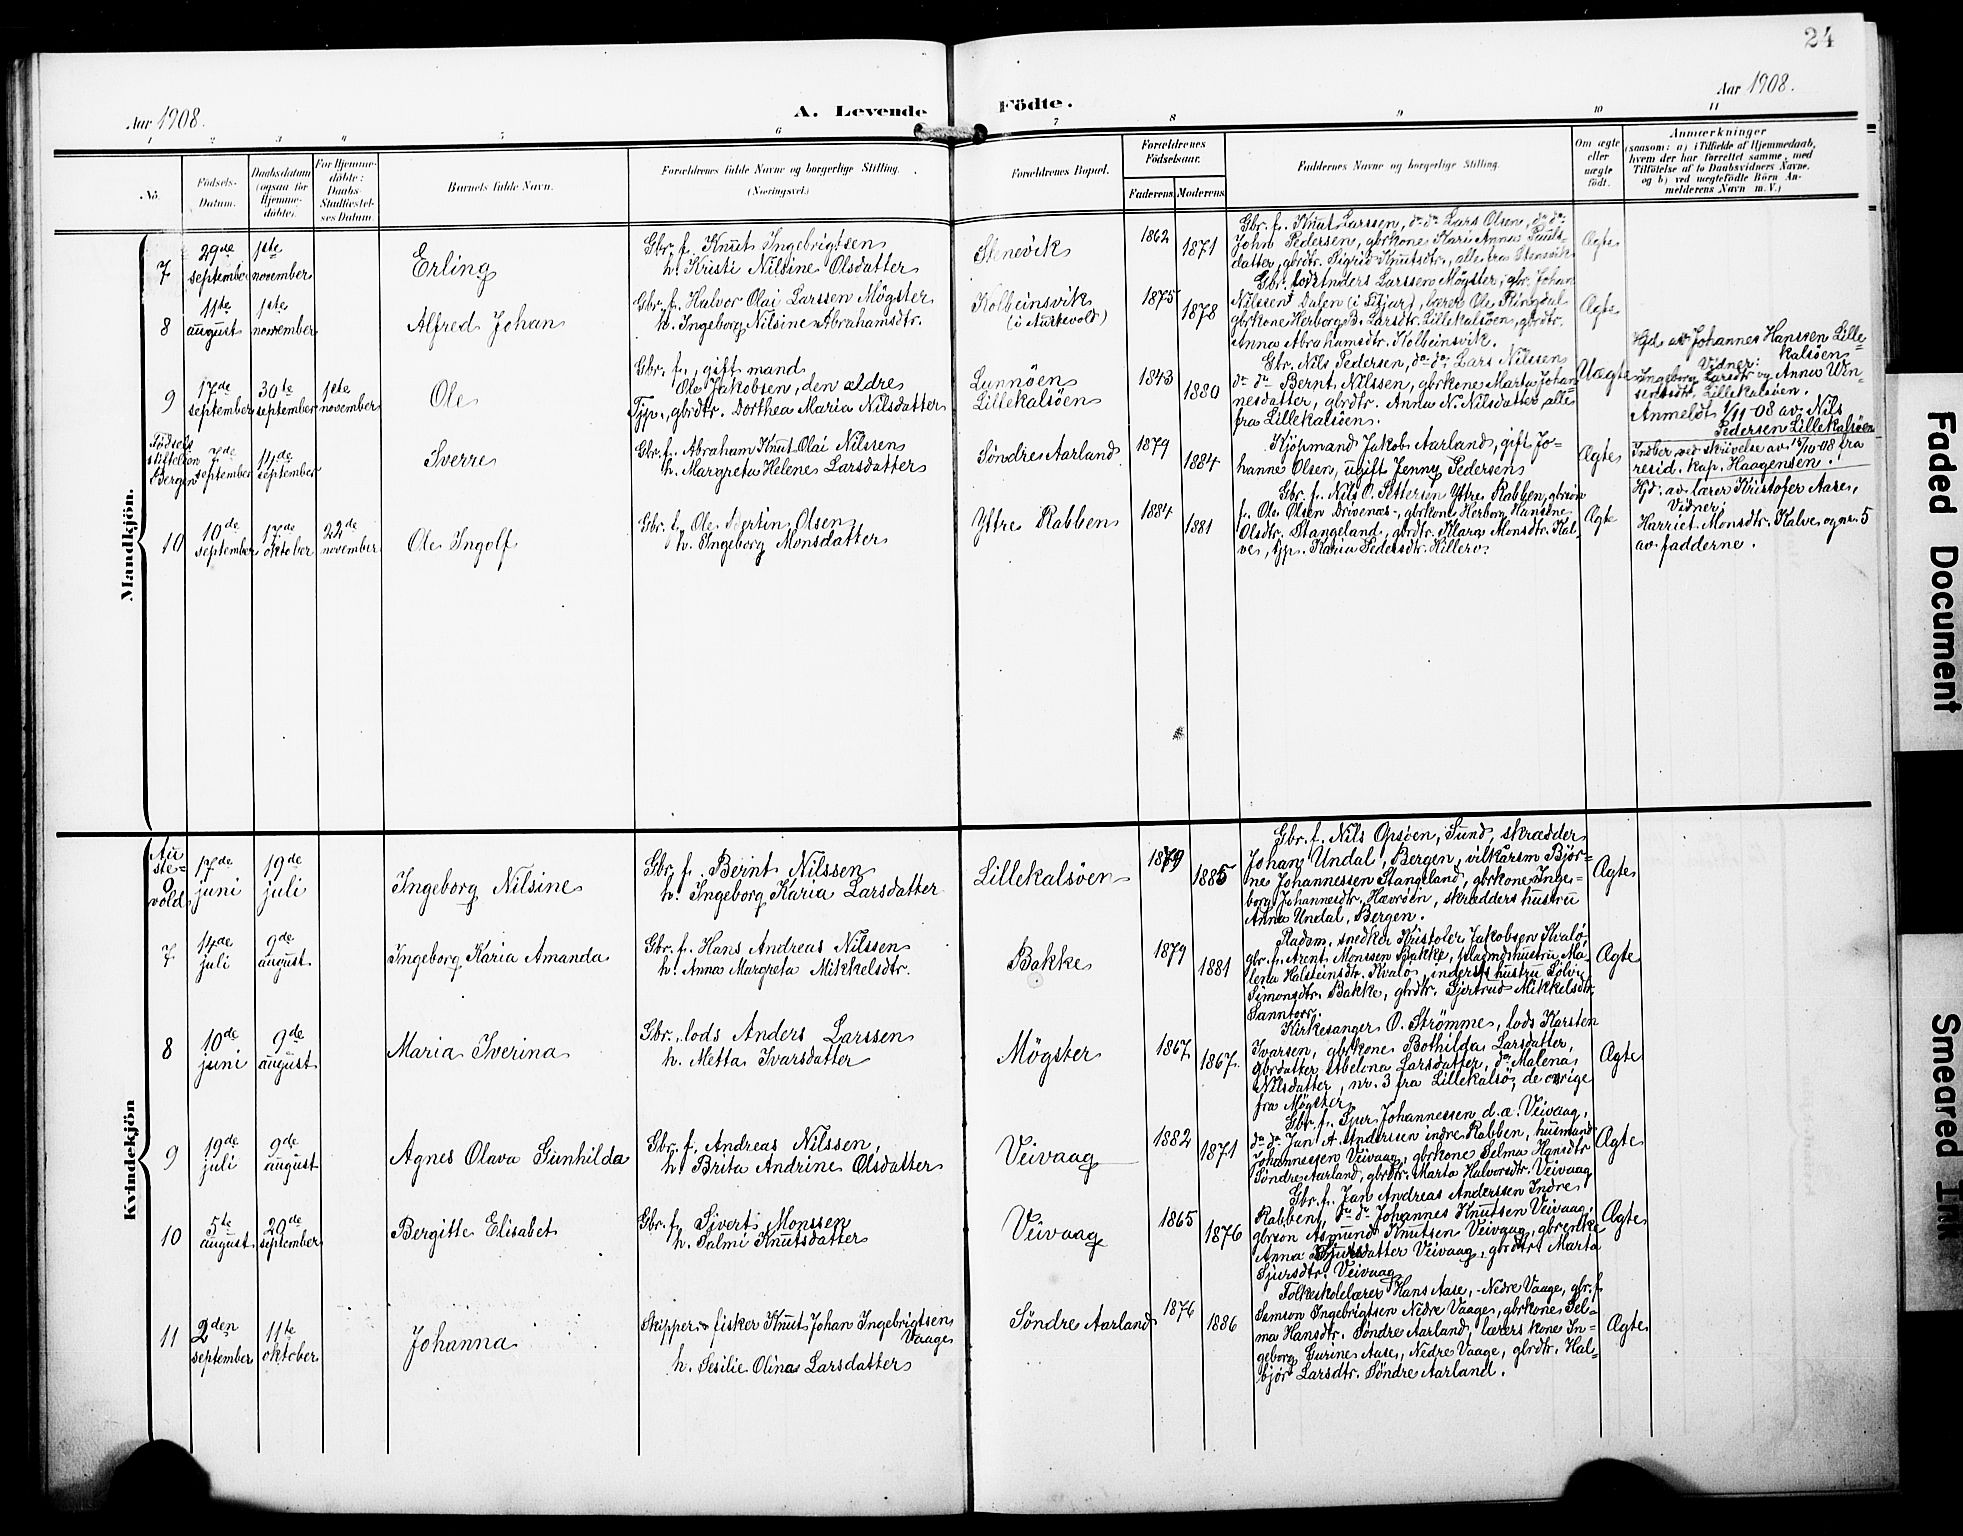 24
Aar 1908.
A. Levende Födte.
Aar 1908.
1 2 3 4 5 6 7 8 9 10 11
No.
Födsels-
Datum.
Daabsdatum
(ogsaa for
Hjemme-
döbte).
For Hjemme-
döbte:
Daabs-
Stadfæstel-
ses Datum.
Barnets fulde Navn.
Forældrenes fulde Navne og borgerlige Stilling.
(Næringsvei.)
Forældrenes Bopæl.
Forældrenes
Födselsaar.
Faderens
Moderens
Faddernes Navne og borgerlige Stilling.
Om ægte
eller
uægte
födt.
Anmærkninger
(saasom: a) i Tilfælde af Hjemmedaab,
hvem der har forrettet samme, med
Tilföielse af to Daabsvidners Navne,
og b) ved uægtefödte Börn An-
melderens Navn m. V.)
Mandkjön.
7
29de
september
1ste
november
Erling
Gbr. f. Knut Ingebrigtsen
h. Kristi Nilsine Olsdatter
Stenevik
1862
1871
Gbr. f. Knut Larssen, do do Lars Olsen, do do
John Pedersen, gbrkone Kari Anna Pauls-
datter, gbrdtr. Sigrid Knutsdtr., alle fra Stenevik
Ægte
8
11te
august
1ste
november
Alfred Johan
Gbr. f. Halvor Olai Larssen Mögster
h. Ingeborg Nilsine Abrahamsdtr.
Kolbeinsvik
(i Austevold)
1875
1878
Gbr. lods Anders Larssen Mögster, gbr. Johan
Nilssen Dalen (i Fitjar), lærer Ole Ringdal
gbrkone Herborg B. Larsdtr. Lillekalsöen, gbrdtr.
Anna Abrahamsdtr. Kolbeinsvik.
Ægte
9
17de
september
30te
september
1ste
november
Ole
Gbr. f., gift mand
Ole Jakobsen, den ældre
Tjp., gbrdtr. Dorthea Maria Nilsdatter
Lunnöen
Lillekalsöen
1843
1880
Gbr. Nils Pedersen, do do Lars Nilssen
do do Bernt Nilssen, gbrkone Marta Johan-
nesdatter, gbrdtr. Anna N. Nilsdatter, alle
fra Lillekalsöen.
Uægte
Hjd. av Johannes Hanssen Lille-
kalsöen
Vidner:
Ingeborg Larsdtr og Anna Win-
sentsdtr, Lillekalsöen.
Anmeldt 1/11-08 av Nils
Pedersen Lillekalsöen
Födsels
stiftelsen
Bergen
7de
september
14de
september
Sverre
Gbr. f. Abraham Knut Olai Nilssen
h. Margreta Helene Larsdatter
Söndre Aarland.
1879
1884
Kjöpmand Jakob Aarland, gift Jo-
hanne Olsen, ugift Jenny Pedersen
Ægte
Indber. ved skrivelse av 15/10-08 fra
resid. kap. Haagensen.
10
10de
september
17de
oktober
22de
november
Ole Ingolf
Gbr. f. Ole Bertin Olsen
h. Ingeborg Monsdatter
Ytre Rabben
1884
1881
Gbr. f. Nils O. Pettersen Ytre Rabben, gbrsön
f. Ole Olsen Drivenes, gbrkone Herborg Hansine
Olsdtr. Stangeland, gbrdtr. Klara Monsdtr. Kal-
ve, tjp. Karia Pedersdtr. Hillerv.
Ægte
Hjd. av lærer Kristofer Aase,
Vidner,
Harriet Monsdtr. Kalve og nr. 5
av fadderne.
Kvindekjön
Au
ste-
vold
17de
juni
19de
juli
Ingeborg Nilsine
Gbr. f. Bernt Nilssen
h. Ingeborg Karia Larsdatter
Lillekalsöen
1879
1885
Gbr. f. Nils Opsöen, Sund, skrædder
Johan Undal, Bergen, vilkårsm Björ-
ne Johannessen Stangeland, gbrkone Inge-
borg Johannesdtr. Hævröen, skrædders hustru
Anna Undal, Bergen.
Ægte
7
14de
juli
9de
august
Ingeborg Karia Amanda
Gbr. f. Hans Andreas Nilssen
h. Anna Margreta Mikkelsdtr.
Bakke
1879
1881
Pladsm. snedker Kristofer Jakobsen Kvalö,
gbr. f. Arent Monssen Bakke, pladsmds hustru Ma-
lena Halsteinsdtr. Kvalö, inderst hustru Sölvi
Simonsdtr. Bakke, gbrdtr. Gjertrud Mikkelsdtr
Sanntorv.
Ægte
8
10de
juni
9de
august
Maria Iverina
Gbr. lods Anders Larssen
h. Metta Ivarsdatter
Mögster
1867
1867.
Kirkesanger O. Strömme, lods Karsten
Ivarsen, gbrkone Bothilda Larsdatter,
gbrdatter Abelona Larsdatter, do Malena
Nilsdatter, nr. 3 fra Lillekalsö, de övrige
fra Mögster
Ægte
9
19de
juli
9de
august
Agnes Olava Gunhilda
Gbr. f. Andreas Nilssen,
h. Brita Andrine Olsdatter
Veivaag
1882
1871
Gbr. f. Sjur Johannessen d.æ. Veivaag,
do do Jan A. Anderssen indre Rabben, husmand
Johannessen Veivaag, gbrkone Selma Hansdtr
Söndre Aarland, gbrdtr. Marta Halvorsdtr. Veivaag
Ægte
10
5te
august
20de
september
Bergitte Elisabet
Gbr. f. Sjvert Monssen
h. Salmi Knutsdatter
Veivaag
1865
1876
Gbr. f. Jan Andreas Anderssen Indre
Rabben, do do Johannes Knutsen Veivaag,
gbrsön Asmund Knutsen Veivaag, gbrenke
Anna Sjursdatter Veivaag, gbrdtr. Marta
Sjursdtr. Veivaag
Ægte
11
2den
september
11te
oktober
Johanna
Skipper fisker Knut Johan Ingebrigtsen
Vaage
h. Sesilie Olina Larsdatter
Söndre Aarland
1876
1886
Folkeskolelærer Hans Aase, Nedre Vaage, gbr. f.
Samson Ingebrigtsen Nedre Vaage, gbrkone Sel-
ma Hansdtr. Söndre Aarland, lærers kone In-
geborg Gurine Aase, Nedre Vaage, gbrdtr. Hal-
björ Larsdtr. Söndre Aarland.
Ægte
Faded Document
Smeared Ink